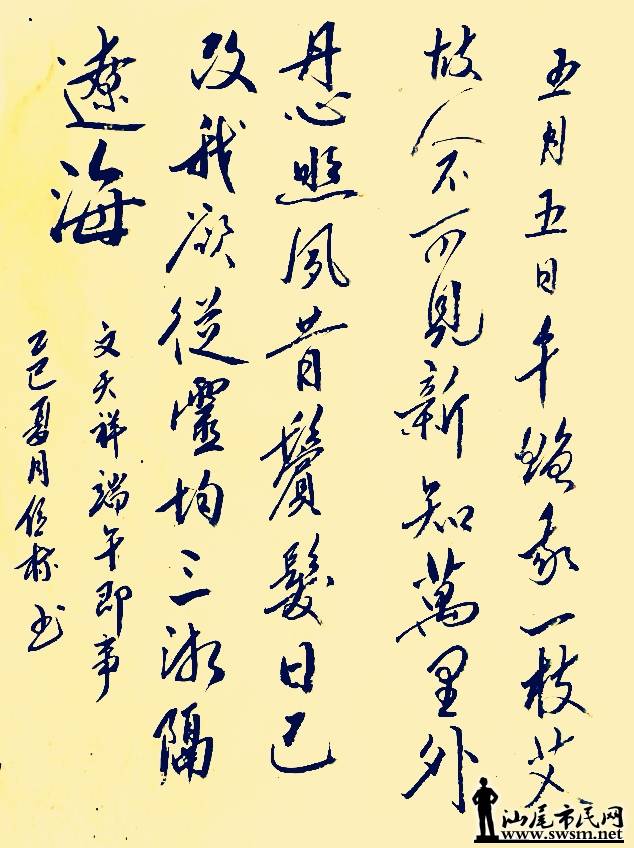 五月五日午贈我一枝艾
故人不可見新知萬里外
丹心照夙昔鬢髮日已
改我欲從靈均三湘隔
遼海
文天祥端午即事
乙巳夏月书
汕尾市民网
www.swsm.net